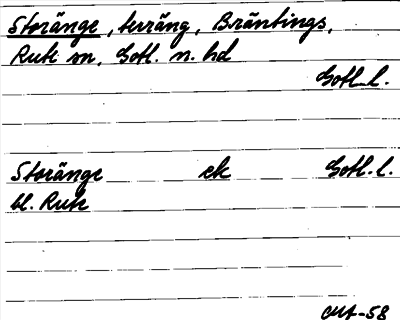 Storänge, terräng, Bräntings,
Rute sn, Gotl. n. hd
Gotl. l.
Storänge ek Gotl. l.
bl. Rute
-58